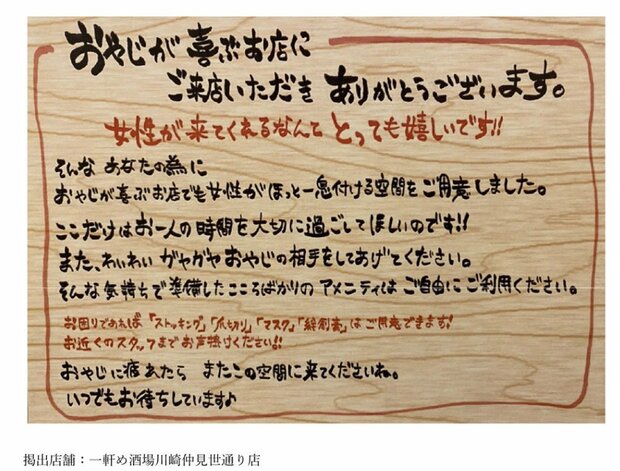 おやじが喜ぶお店に
ご来店いただき ありがとうございます。
女性が来てくれるなんて とっても嬉しいです!!
そんな あなたの為に
おやじが喜ぶお店でも女性がほっと一息付ける空間をご用意しました。
ここだけはお一人の時間を大切に過ごしてほしいのです!!
また、わいわい ガヤガヤ おやじの相手をしてあげてください。
そんな気持ちで準備したこころばかりの アメニティは ご自由にご利用ください。
お困りであれば 「ストッキング」「爪切り」「マスク」「絆創膏」はご用意できます!
お近くのスタッフまでお声掛けください!!
おやじに疲れたら またこの空間に来てくださいね。
いつでもお待ちしています♪
掲出店舗：一軒め酒場川崎仲見世通り店